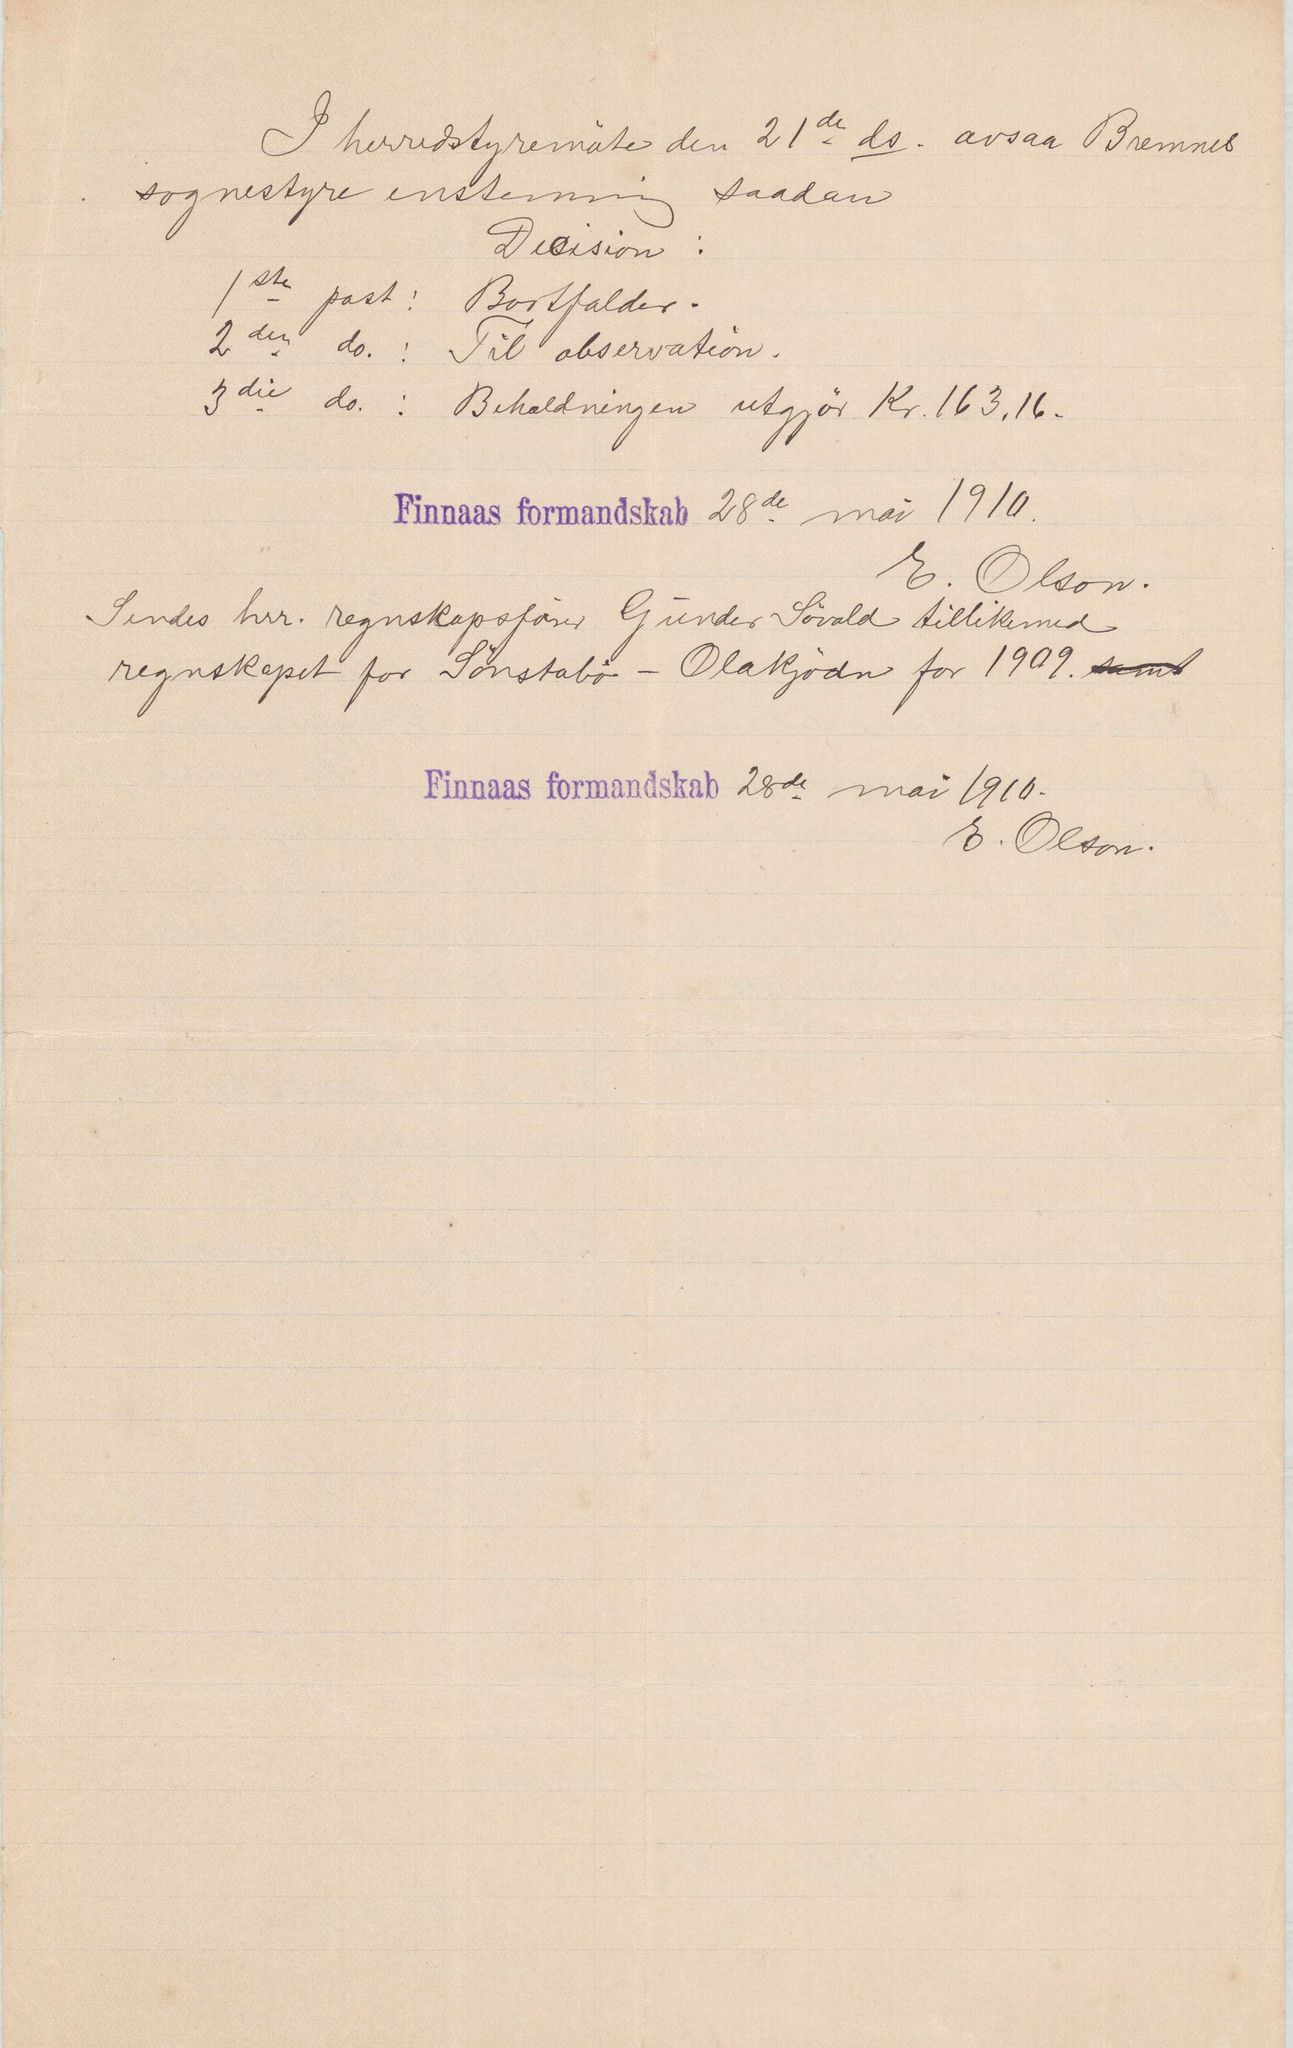 I herredstyremöte den 21de ds. avsaa Bremnes
sognestyre enstemmig saadan
Decision :
1ste post : Bortfalder.
2den do. : Til observation.
3die do. : Beholdningen utgjör Kr. 163,16.
Finnaas formandskab 28de mai 1910.
E. Olson.
Sendes hrr. regnskapsförer Gunder Sövold tillikemed
regnskapet for Sönstabö - Olakjödn for 1909. samt
Finnaas formandskab 28de mai 1910.
E. Olson.